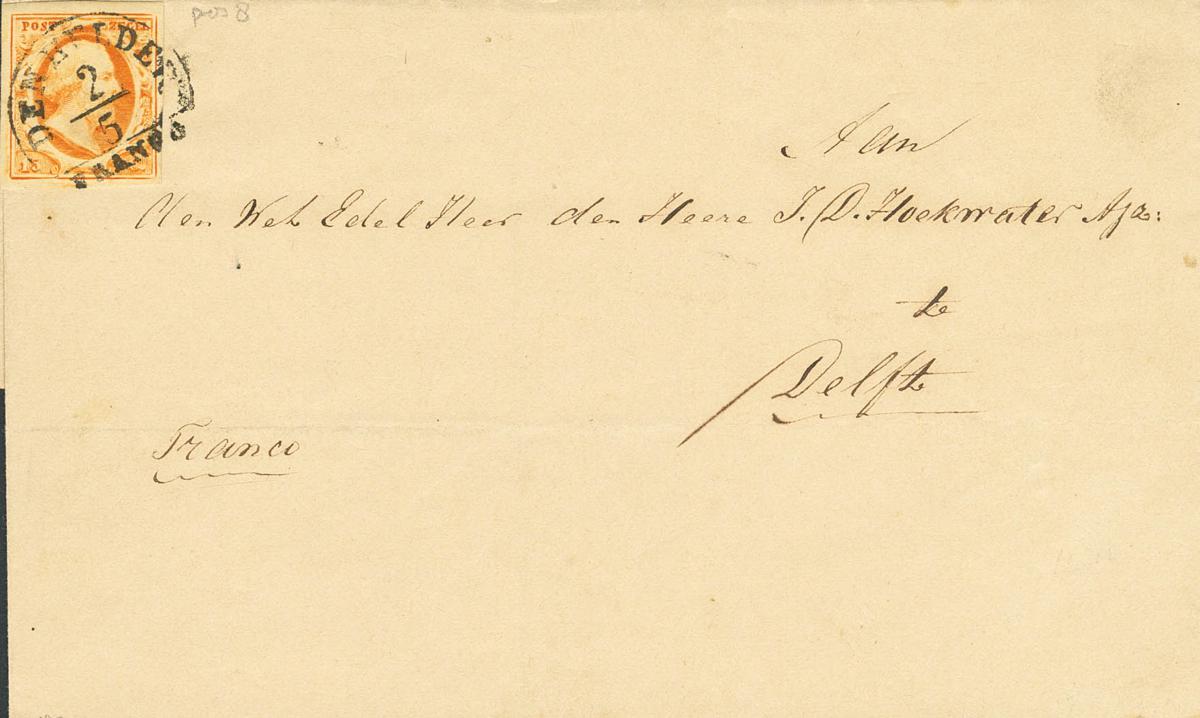 POSTZEGEL
DEN HELDER
2/5
FRANCO
pos 8
Aan
den Wel Edel Heer den Heere J. D. Hoekwater Ajz:
te
Delft
Franco